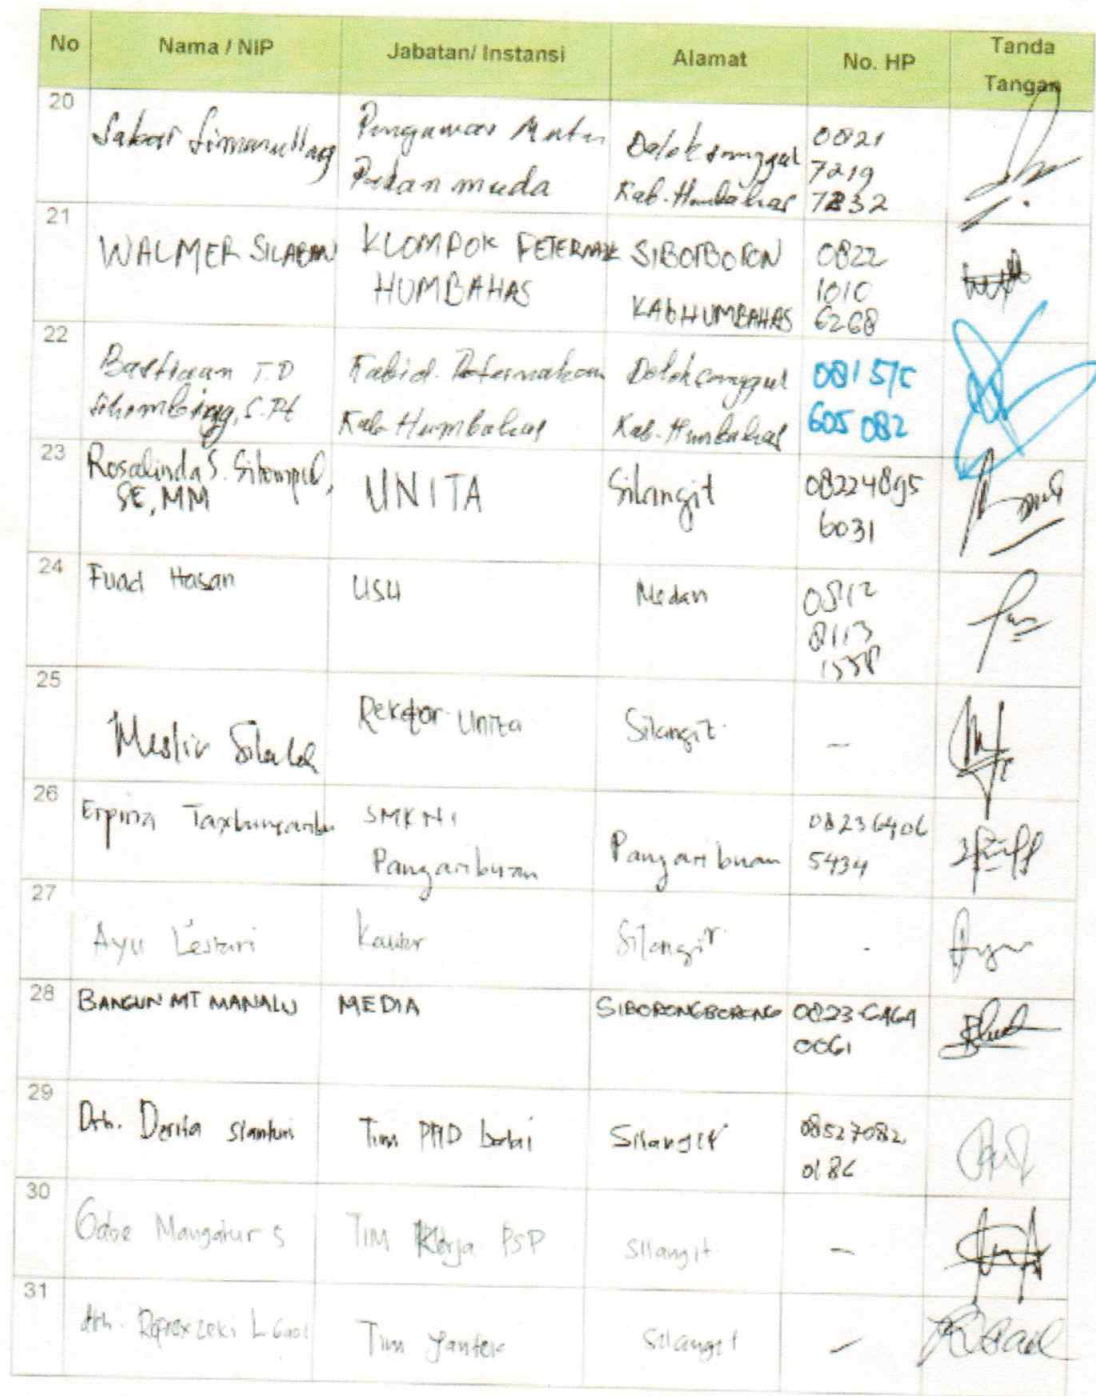 No Nama / NIP Jabatan/ Instansi Alamat No. HP Tanda Tangan
20 Sabar Simanullang Pengawas Mutu Pakan muda Doloksanggul Kab. Humbahas 0821 7219 7232
21 WALMER SILABAN KLOMPOK PETERNAK HUMBAHAS KAB HUMBAHAS 0822 1010 6268
22 Bastiaan T.D Sihombing, S.Pt Kabid. Peternakan Kab. Humbahas Doloksanggul Kab. Humbahas 605 082
23 Rosalinda S. Sitompul, SE, MM UNITA Silangit 6031
24 Fuad Hasan USU Medan 0812 8113
25 Rektor Unita Silangit -
26 Erpina SMKN1 Pangaribuan Pangaribuan 08236406 5434
27 Ayu Lestari Silangit -
28 BANGUN MT MANALU MEDIA SIBORONGBORONG 0061
29 Drh. Derita Sianturi Tim Silangit 08527082 0186
30 Mangatur S TIM Kerja PSP Silangit -
31 drh. Tim Yantek Silangit -